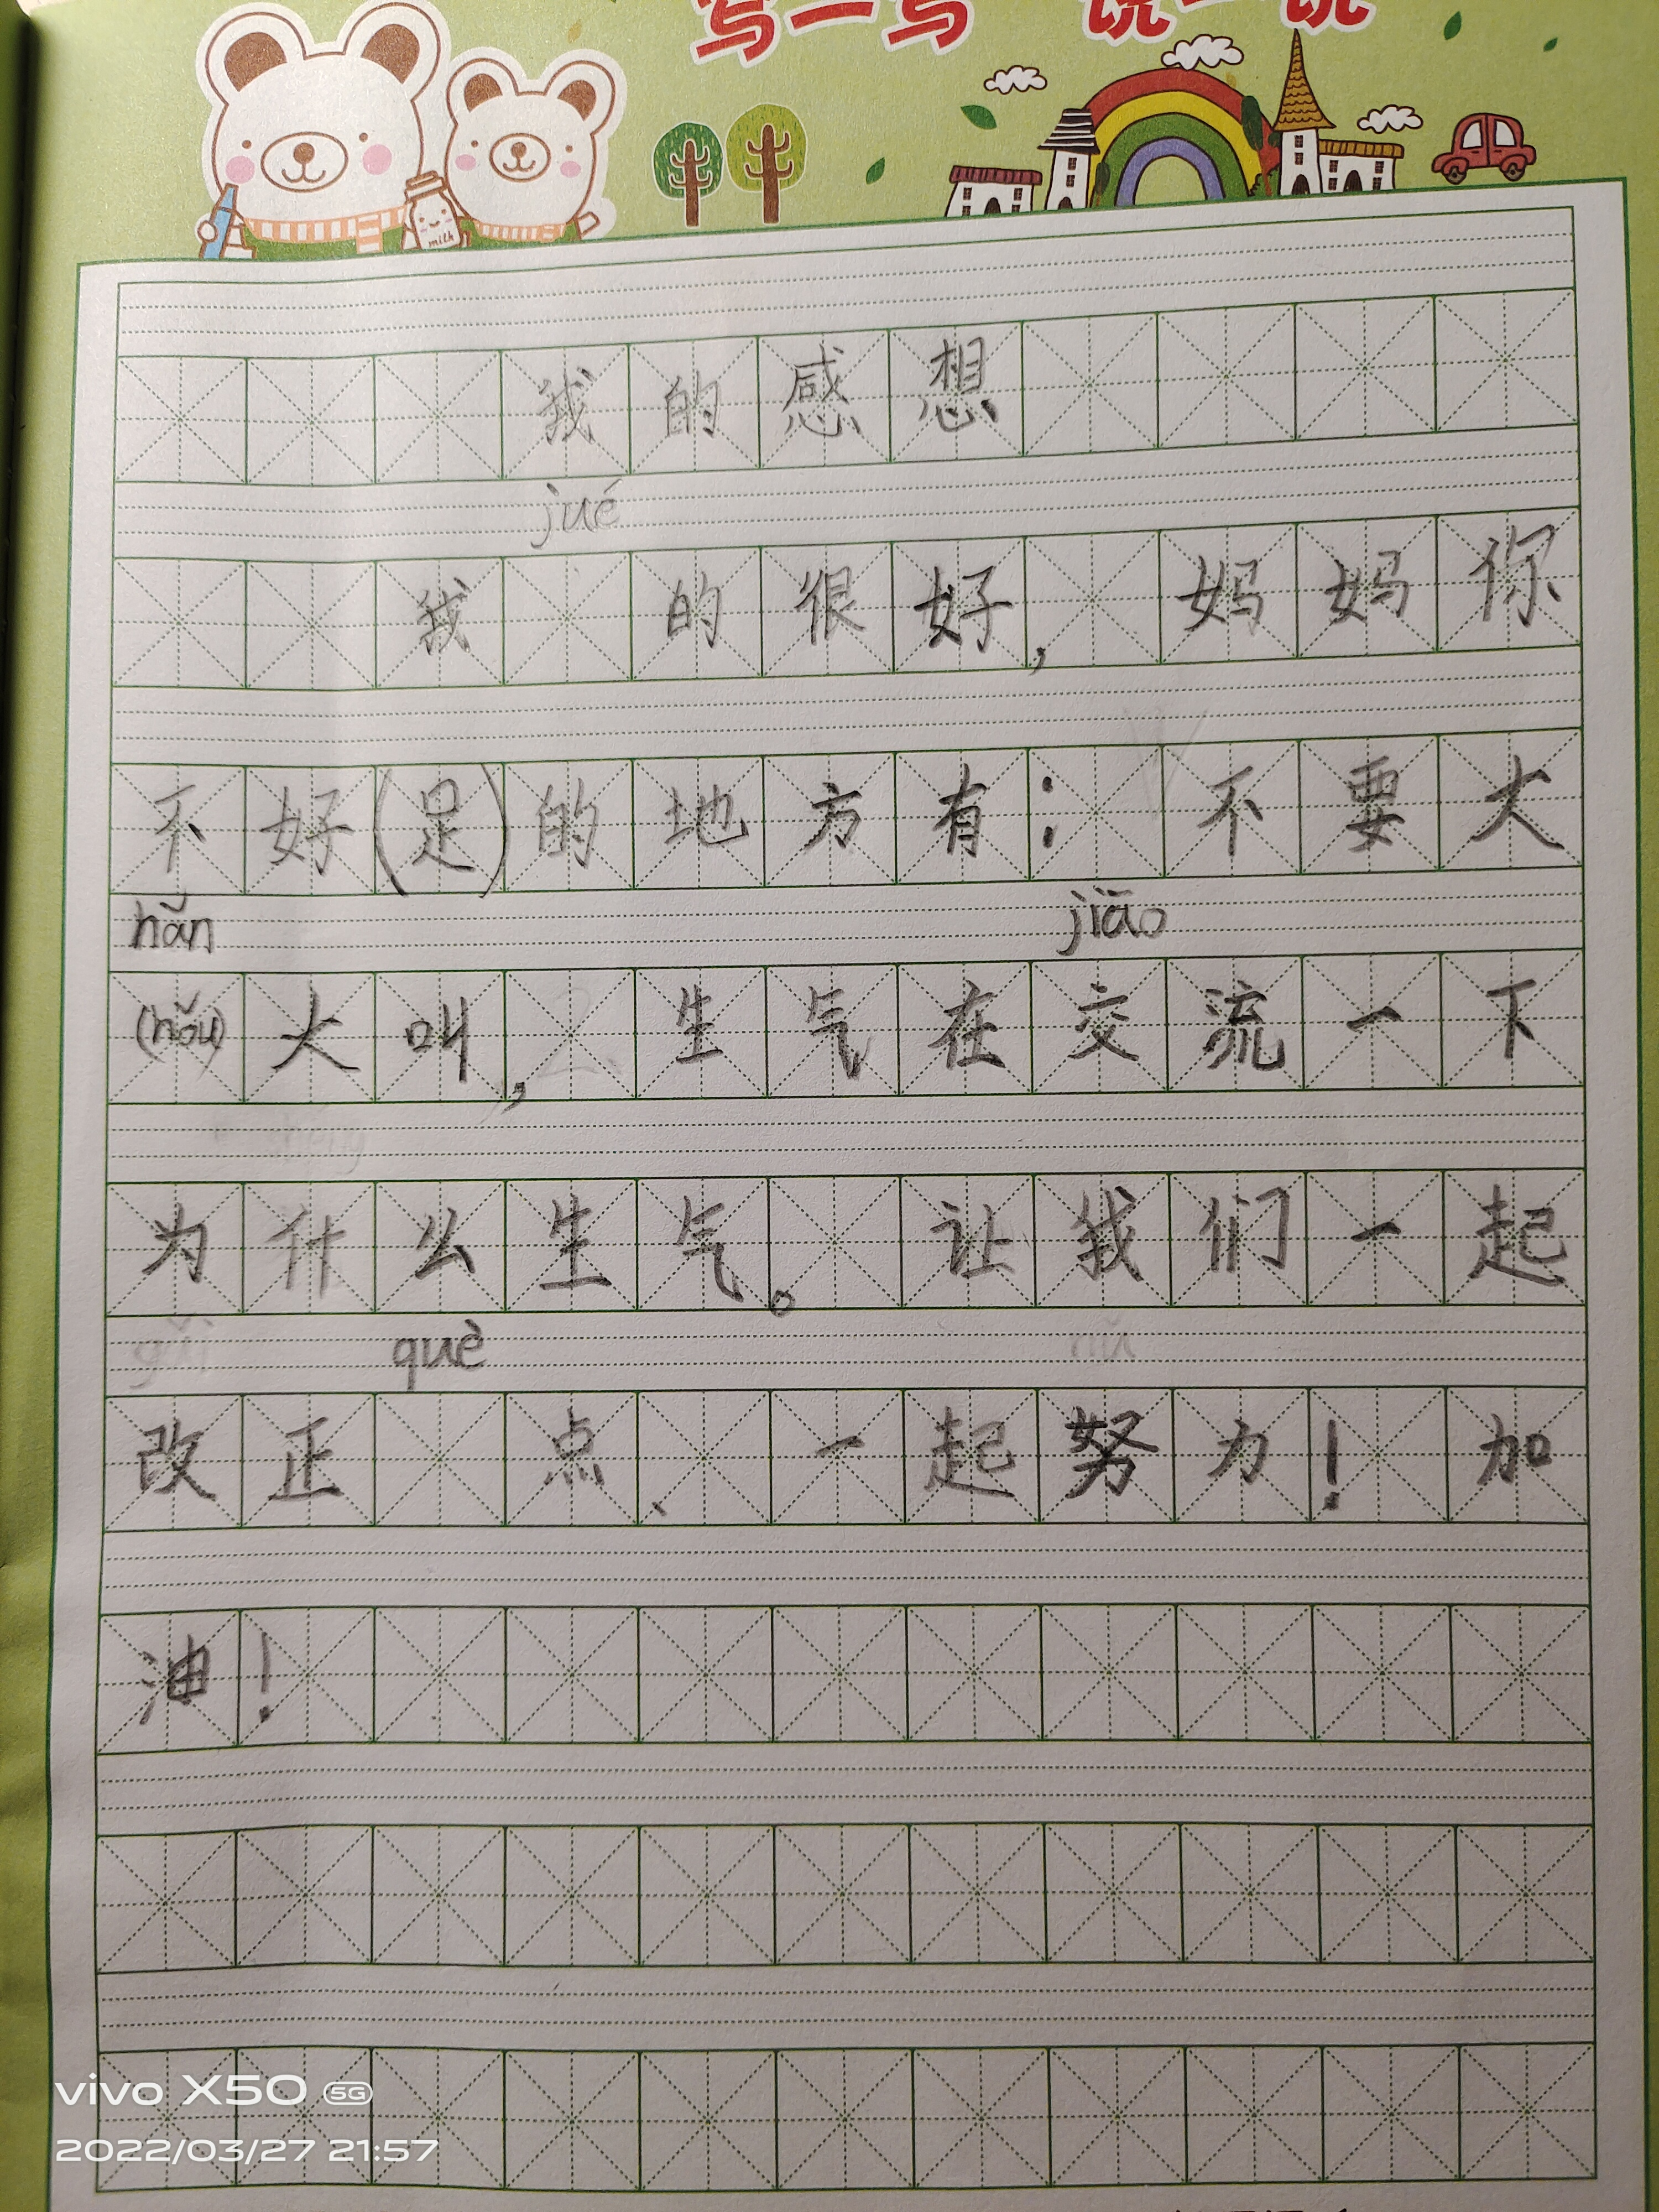 写一写 说一说
milk
我的感想
jué
我 的很好, 妈妈你
不好(足)的地方有: 不要大
hǎn jiāo
(hǒu)大叫, 生气在交流一下
为什么生气。 让我们一起
què
改正 点、一起努力! 加
油!
vivo X50 5G
2022/03/27 21:57